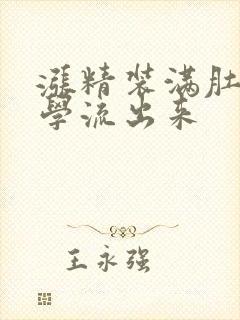 漲精装满肚
學流出来
王永强